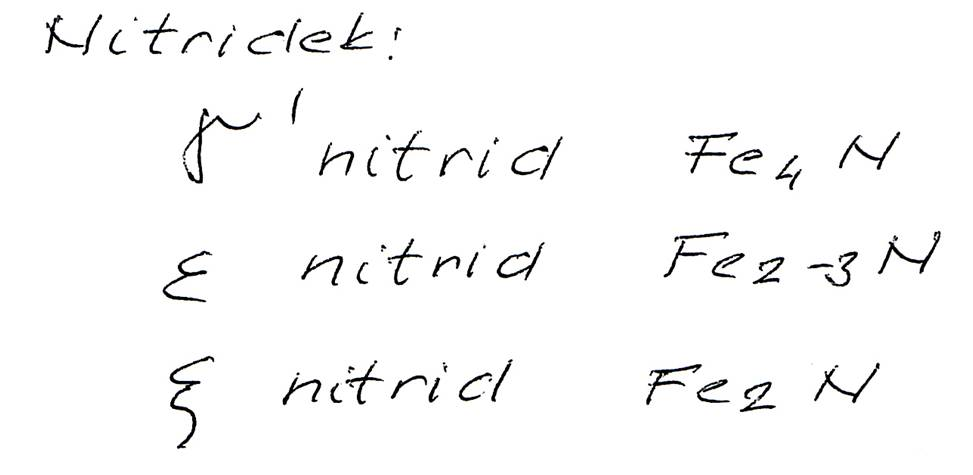 Nitridek:
γ' nitrid Fe₄N
ε nitrid Fe₂₋₃N
ξ nitrid Fe₂N